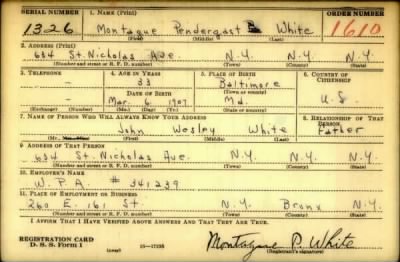 SERIAL NUMBER 1. NAME (Print) ORDER NUMBER
1326 Montague Pendergast White 1610
(First) (Middle) (Last)
2. ADDRESS (Print)
634 St. Nicholas Ave. N.Y. N.Y.
(Number and street or R. F. D. number) (Town) (County) (State)
3. TELEPHONE 4. AGE IN YEARS 5. PLACE OF BIRTH 6. COUNTRY OF CITIZENSHIP
33 Baltimore
DATE OF BIRTH (Town or county)
- Mar. 6 1907 Md. U.S.
(Exchange) (Number) (Mo.) (Day) (Yr.) (State or country)
7. NAME OF PERSON WHO WILL ALWAYS KNOW YOUR ADDRESS 8. RELATIONSHIP OF THAT PERSON
John Wesley White Father
(Mr. (First) (Middle) (Last)
9. ADDRESS OF THAT PERSON
634 St. Nicholas Ave. N.Y. N.Y.
(Number and street or R. F. D. number) (Town) (County) (State)
10. EMPLOYER'S NAME
W.P.A. # 341239
11. PLACE OF EMPLOYMENT OR BUSINESS
260 E. 161 St. N.Y. Bronx N.Y.
(Number and street or R. F. D. number) (Town) (County) (State)
I AFFIRM THAT I HAVE VERIFIED ABOVE ANSWERS AND THAT THEY ARE TRUE.
REGISTRATION CARD
D. S. S. Form 1 (over) 16-17105 Montague P. White
(Registrant's signature)